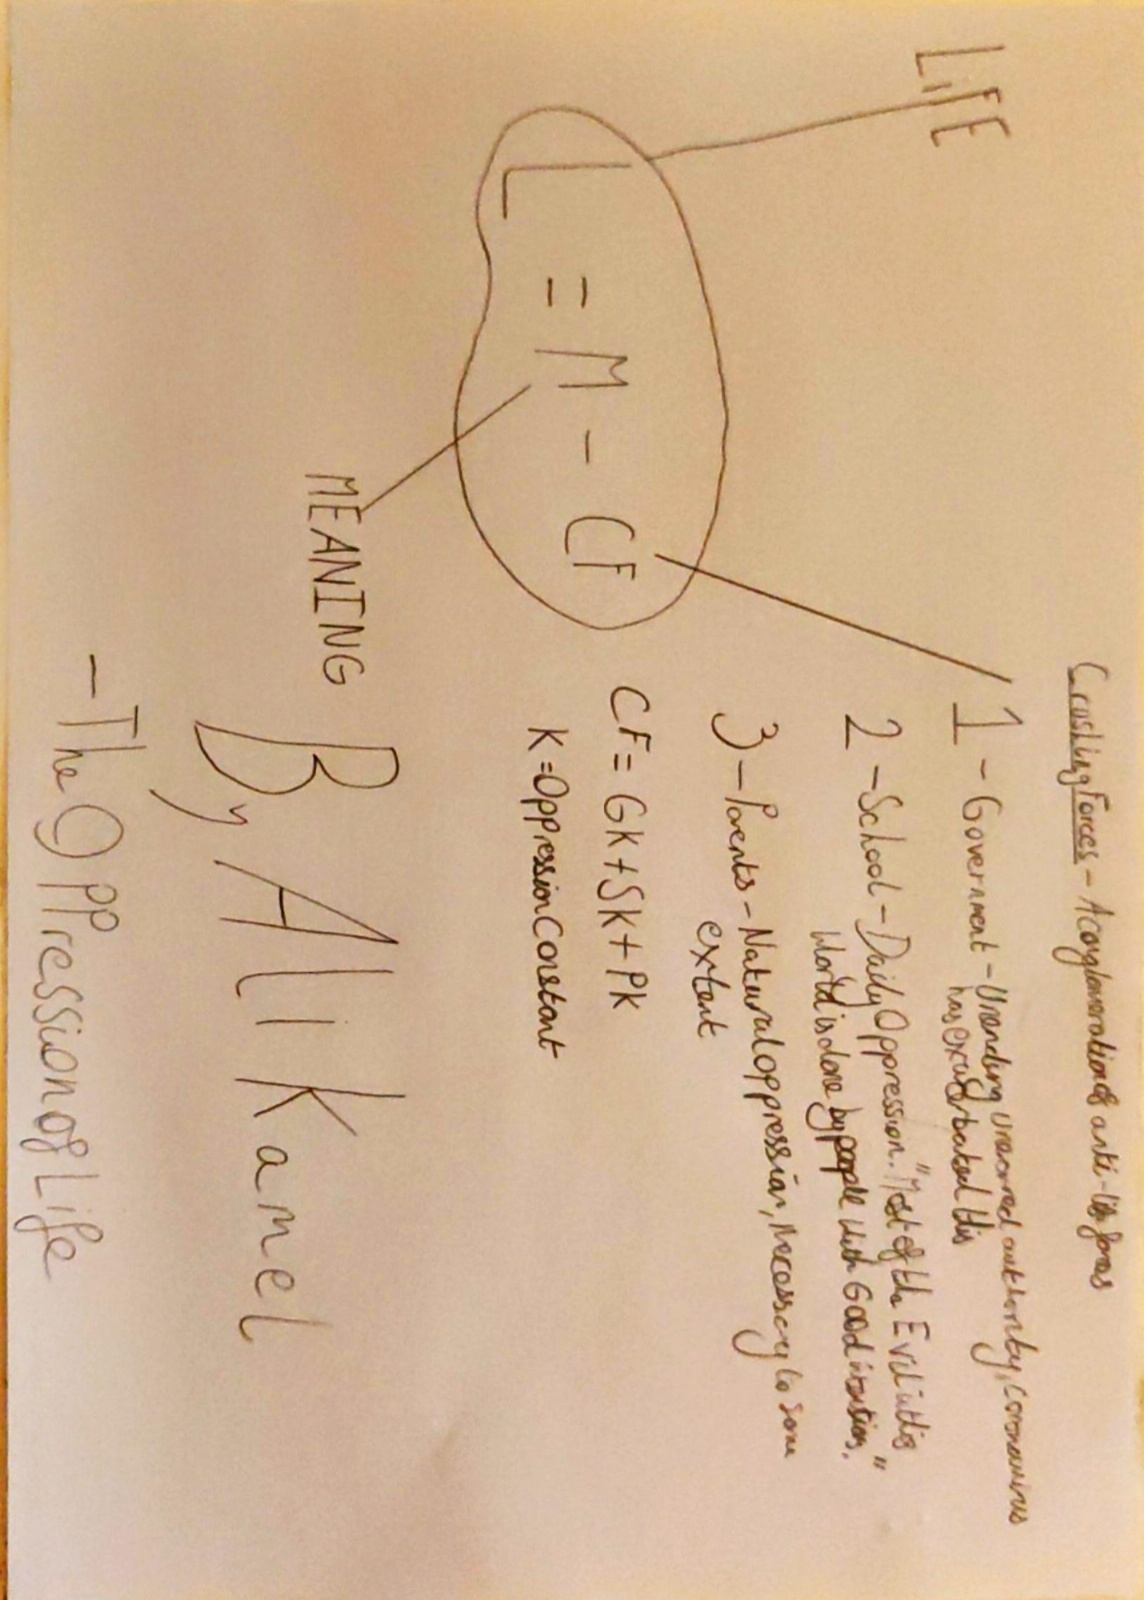 LIFE
L = M - CF
MEANING
Crushing Forces - A conglomeration of anti-life forces
1 - Government - Unending unearned authority, coronavirus
has exaserbated this
2 - School - Daily Oppression. "Most of the Evil in this
World is done by people with Good intentions."
3 - Parents - Natural oppression, Necessary to some
extent
CF = GK + SK + PK
K = Oppression Constant
By Ali Kamel
- The Oppression of Life